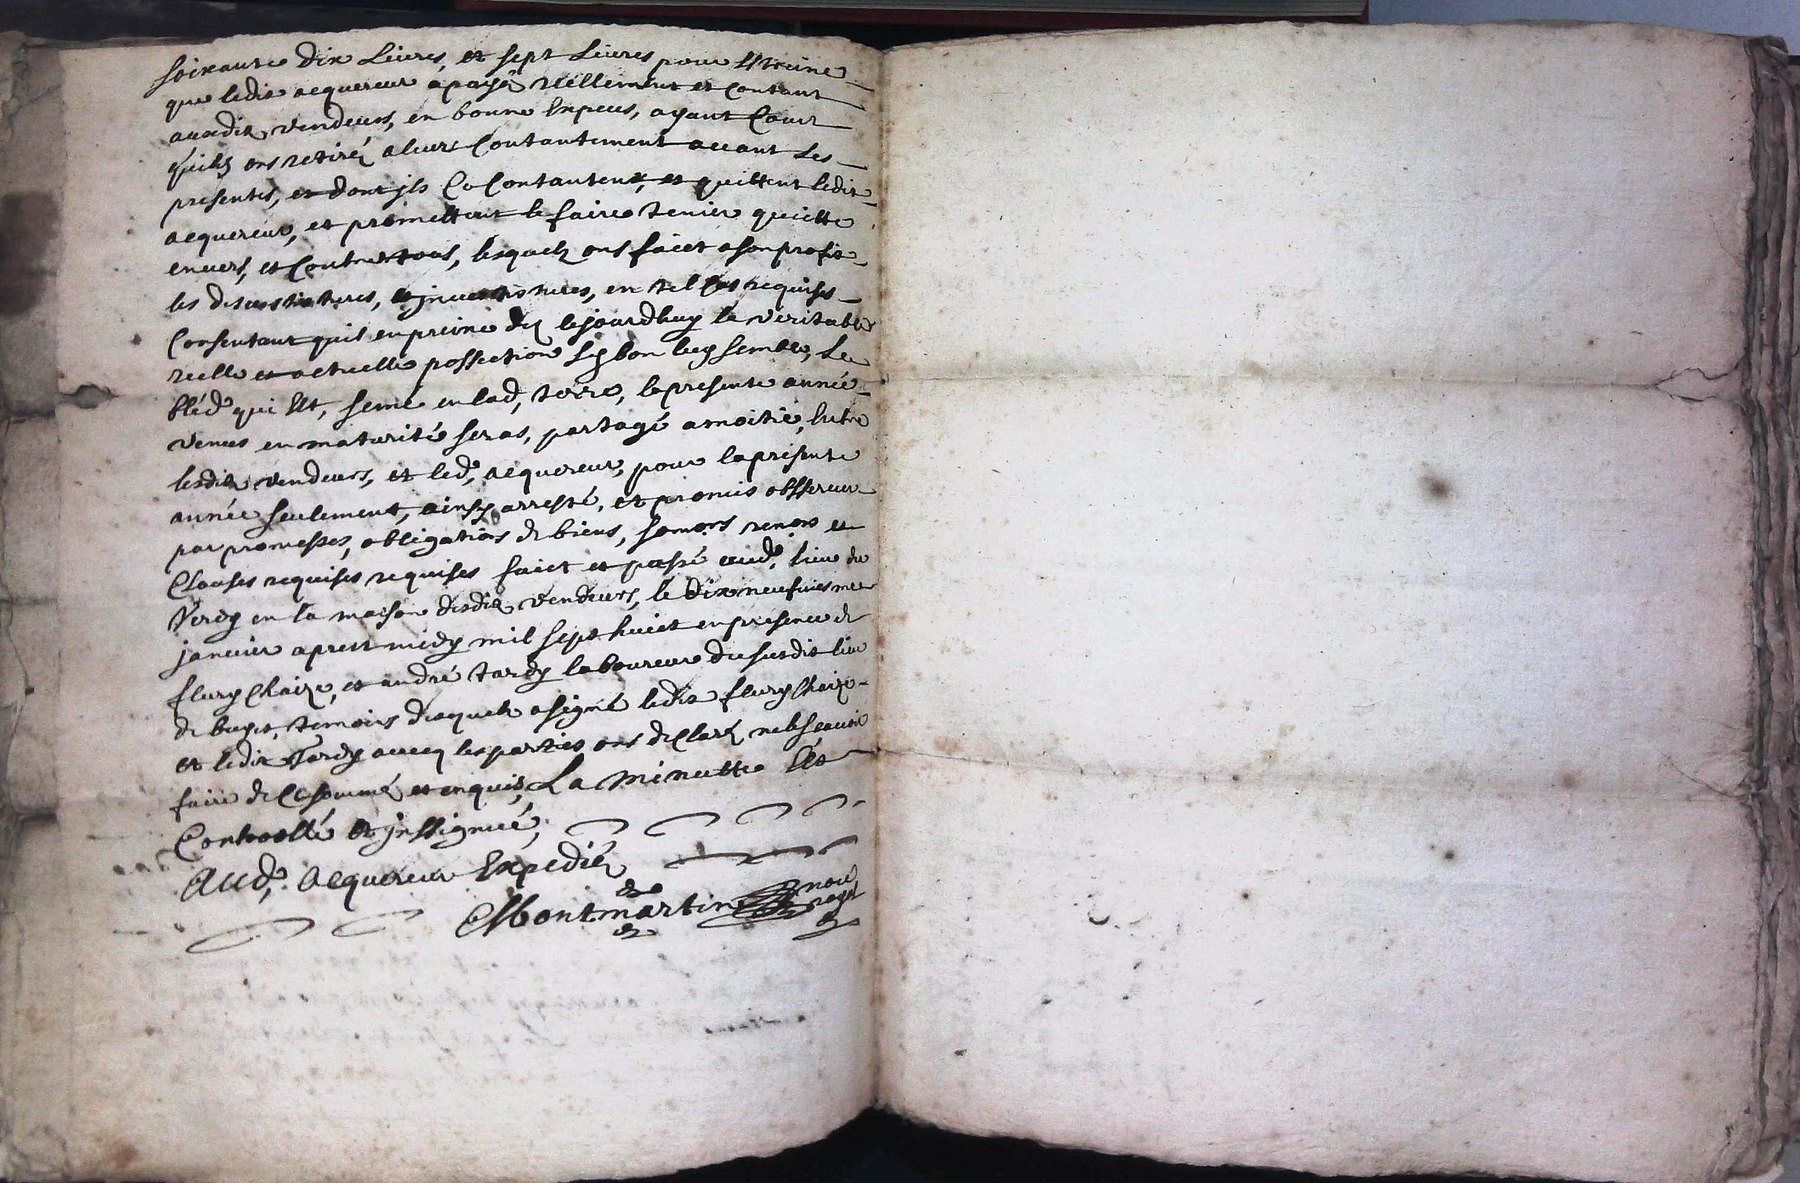 soixante dix Livres, et sept Livres pour Etreine
que ledit acquereur a payé réellement et contant
auxdits vendeurs, en bonne Expeces, ayant Cour
quils ons retiré a leure Contantement avant Les
presentes, et dont jls Ce Contantent, et quittent ledit
acquereur, et promettent le faire tenire quitte
envers, et Contre tous, lesquels ons faict a son profit
les devestitures, et jnvestitures, en tel Cas requises
Consentant quil en preine des le jourdhuy la veritable
reelle et actuelle possection sy bon luy semble, Le
bléd qui Est, semé en lad, terre, la presente année
venus en maturité seras, partagé a moitié, Entre
lesdits vendeurs, et led, acquereur, pour la présente
année seulement, ainsy arresté, et promis observer
par promesses, obligations de biens, renons et
Clauses requises requises faict et passé aud, lieu de
en la maison desdits vendeurs, le dix neufuiesme
janvier aprest midy mil sept huict en presence de
fleury Chaize, et andré tardy laboureurs du susdit lieu
de temoins desquels a signé ledit fleury Chaize
et ledit Tardy avecq les parties ons declaré ne Sçavoir
faire de Ce sommé et enquis, La minutte Est
Controollé Et jnssignué,
Aud, acquereur Expedié
Montmartin noire
royal